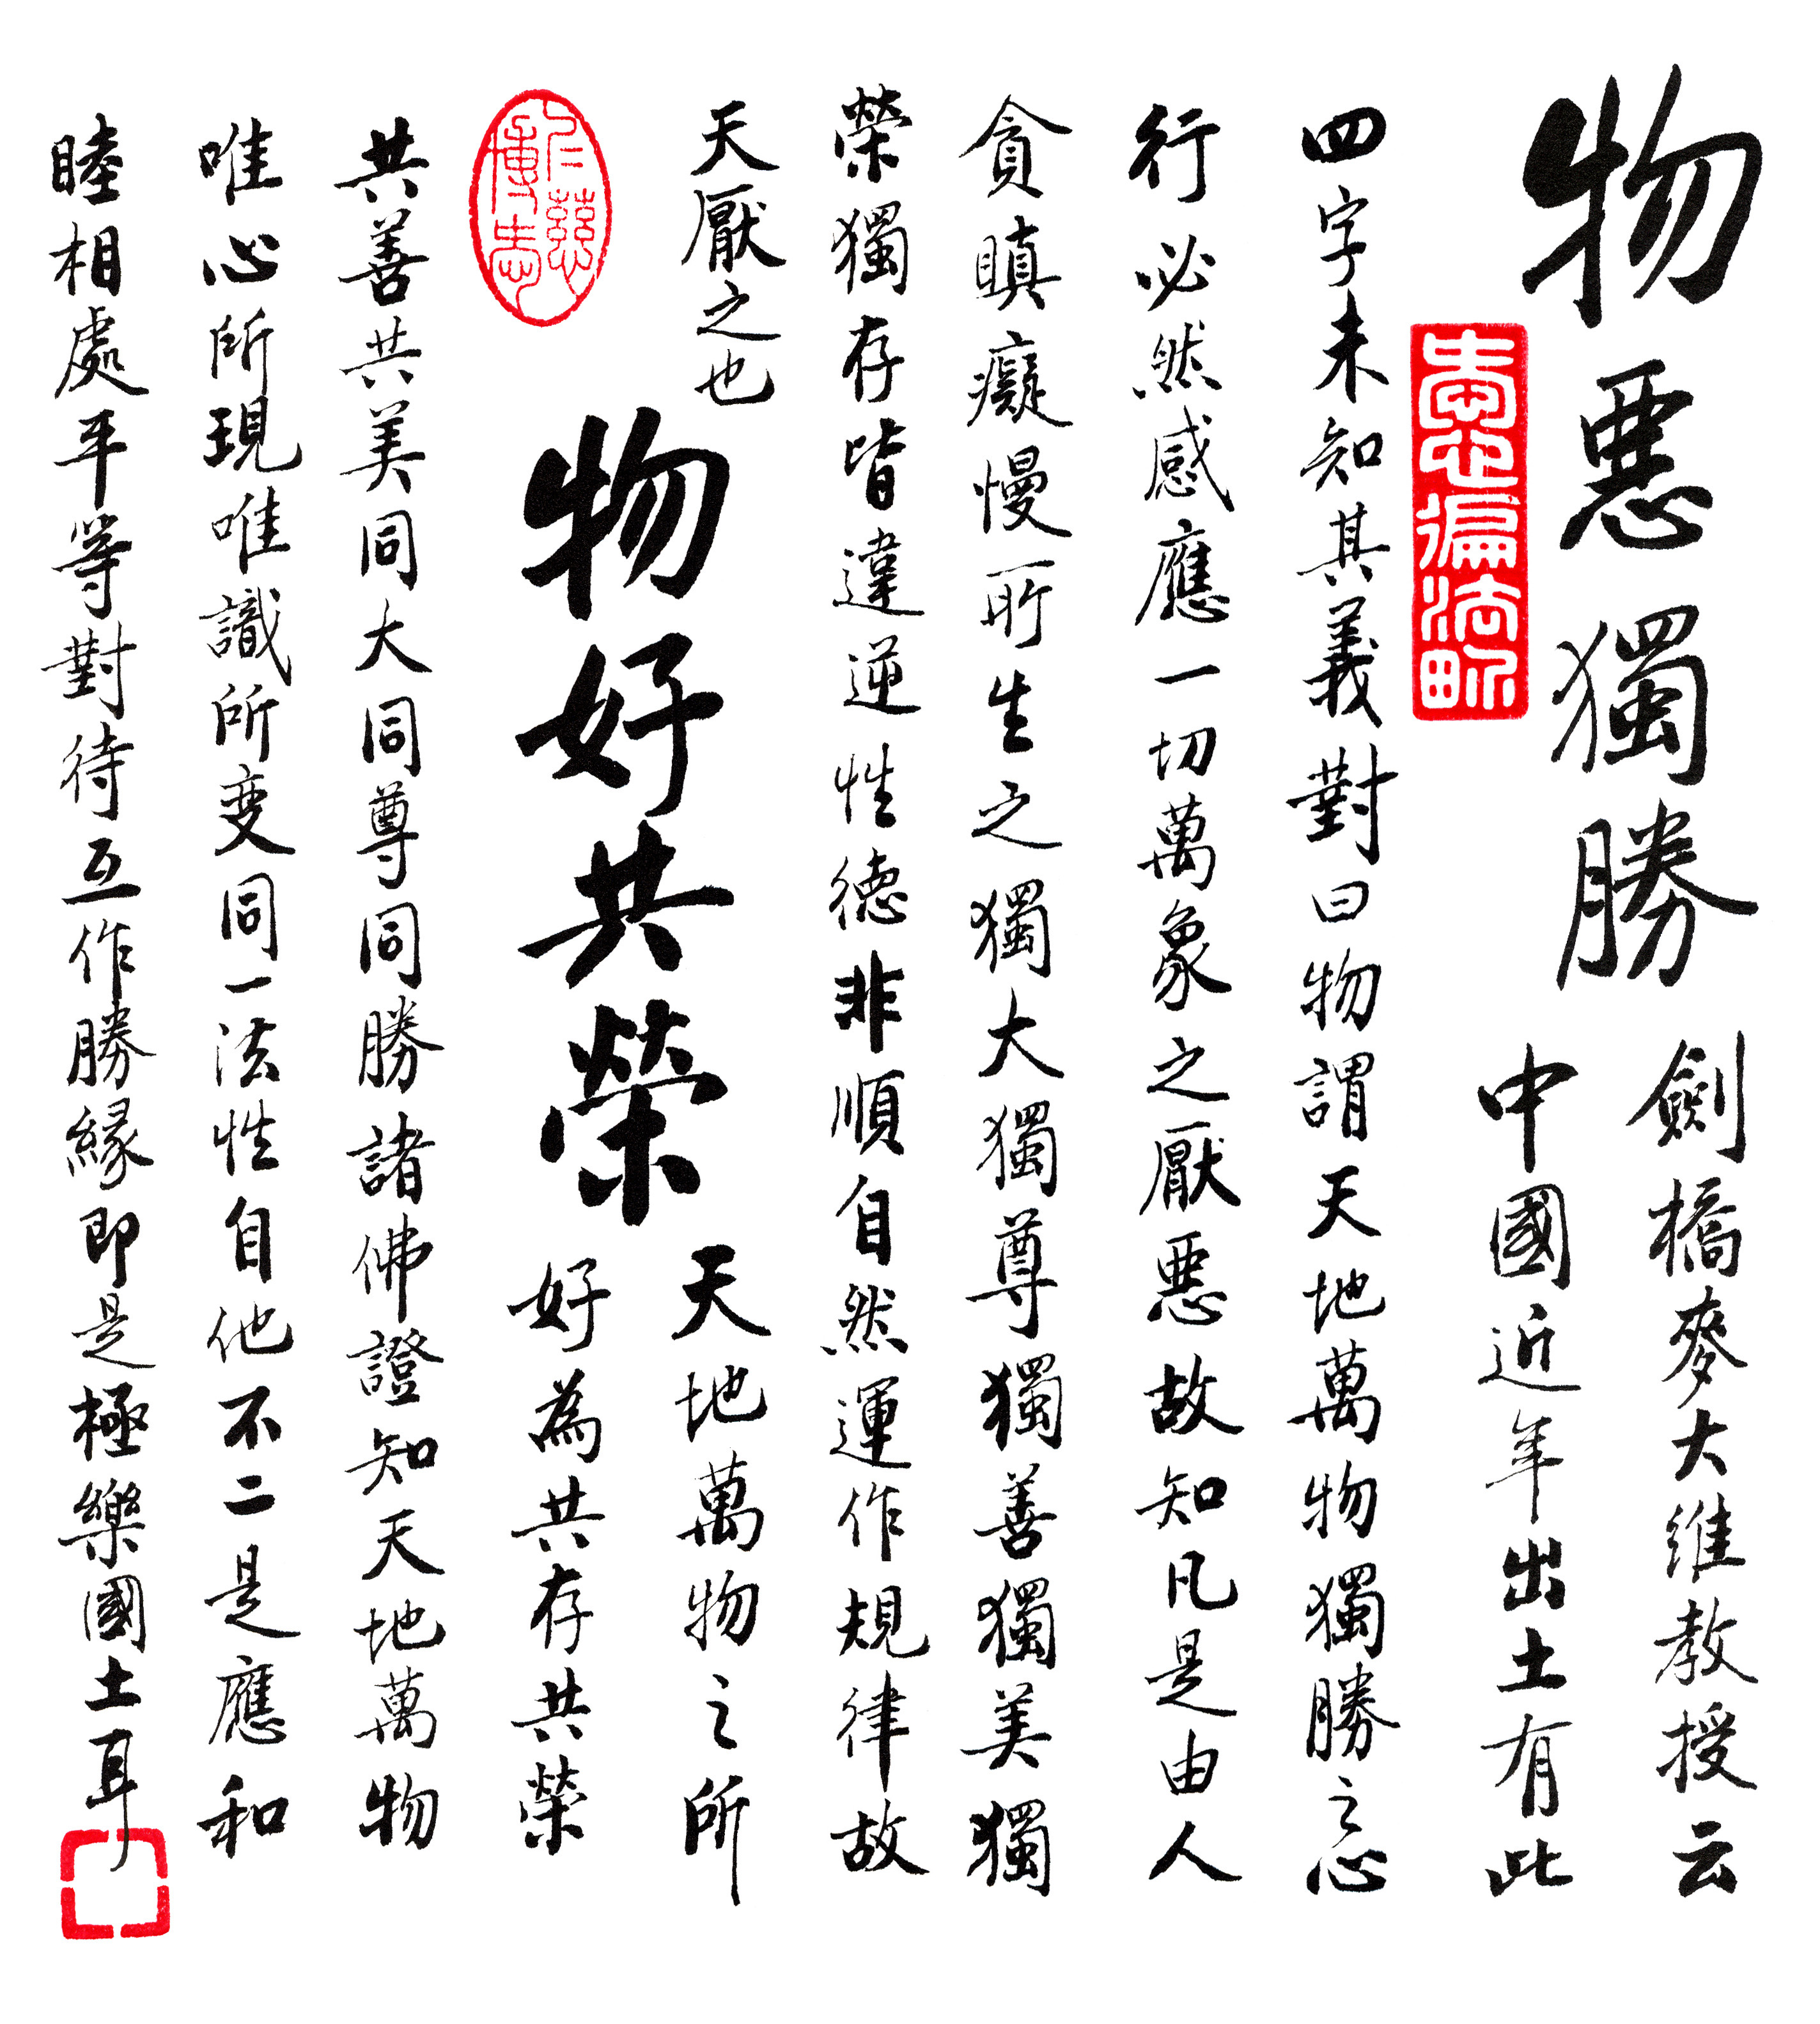 物惡獨勝
劍橋麥大維教授云
中國近年出土有此
四字未知其義對曰物謂天地萬物獨勝之心
行必然感應一切萬象之厭惡故知凡是由人
貪瞋癡慢所生之獨大獨尊獨善獨美獨
榮獨存皆違逆性德非順自然運作規律故
天厭之也
物好共榮
天地萬物之所
好為共存共榮
共善共美同大同尊同勝諸佛證知天地萬物
唯心所現唯識所变同一法性自他不二是應和
睦相處平等對待互作勝緣即是極樂國土耳